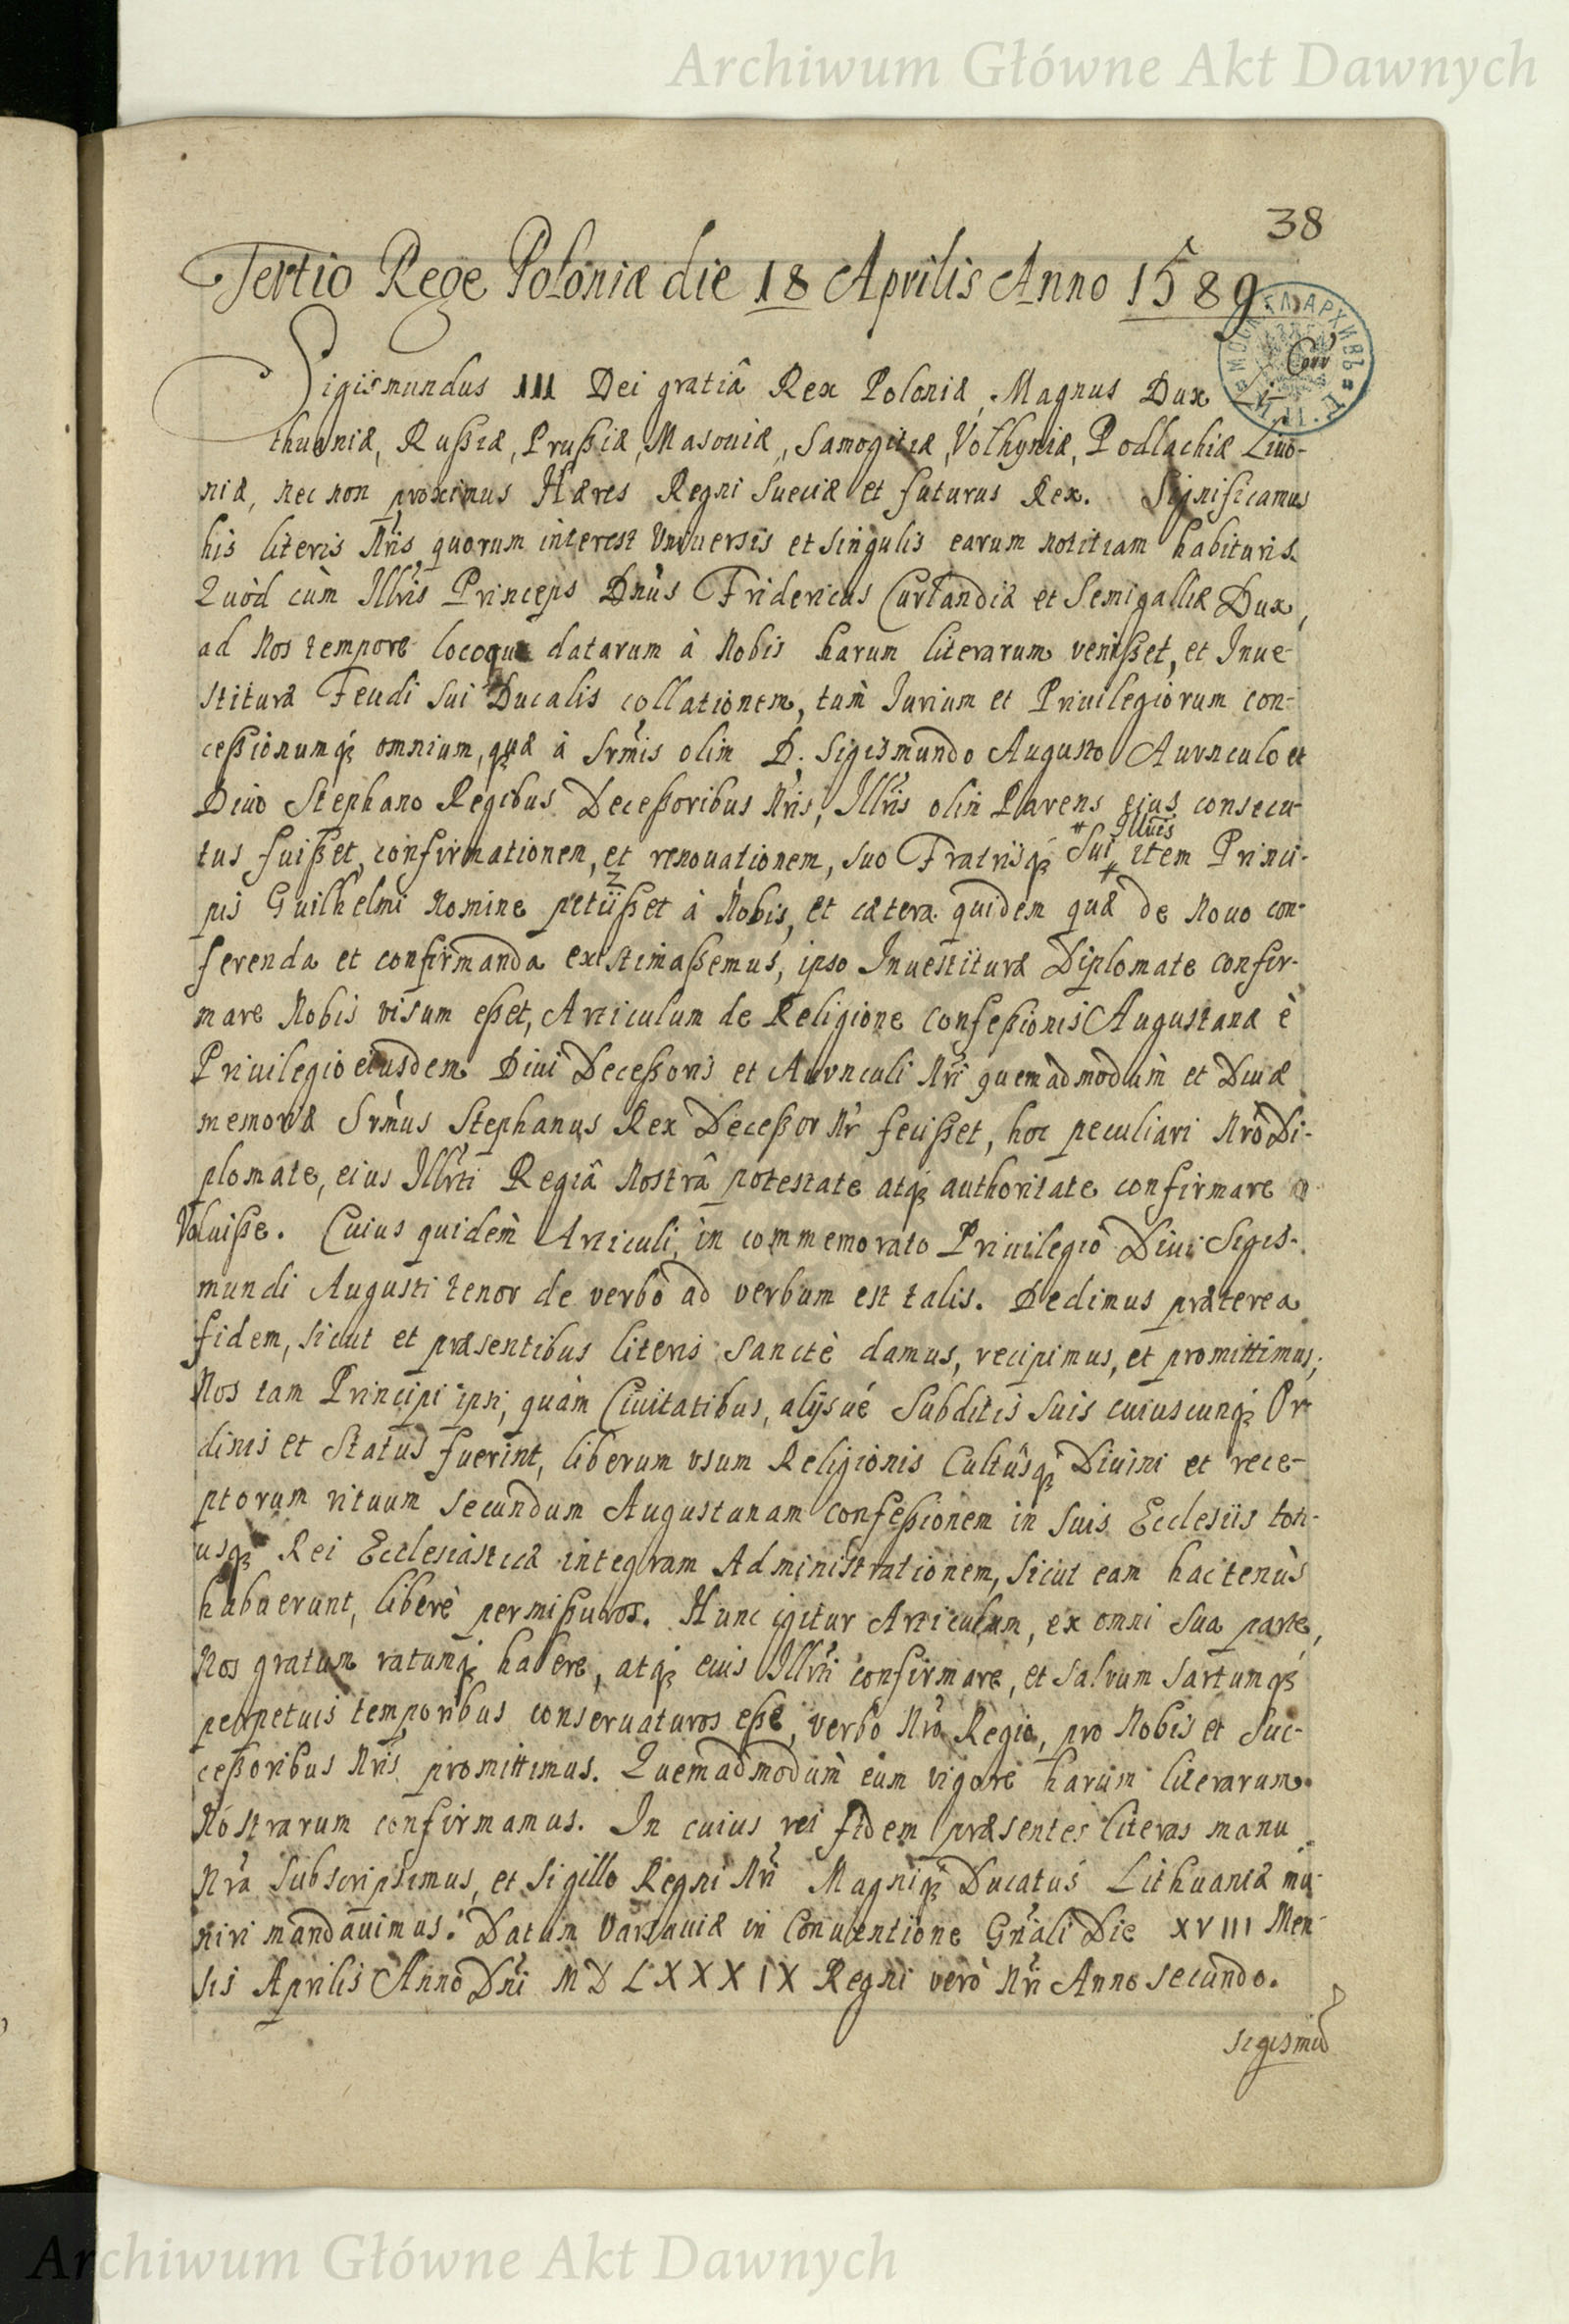 Archiwum Główne Akt Dawnych
38
Tertio Rege Poloniæ die 18 Aprilis Anno 1589
Sigismundus III Dei gratiâ Rex Poloniæ, Magnus Dux Li-
thuaniæ, Rußiæ, Prußiæ, Masouiæ, Samogitiæ, Volhyniæ, Podlachiæ Liuo-
niæ, nec non proximus Hæres Regni Sueciæ et futurus Rex. Significamus
his literis Nris quorum interest Vniuersis et singulis earum notitiam habituris.
Quòd cùm Illris Princeps Dnus Fridericus Curlandiæ et Semigalliæ Dux,
ad Nos tempore locoque datarum à Nobis harum literarum venißet, et Inue-
stituræ Feudi sui Ducalis collationem, tum Iurium et Priuilegiorum con-
ceßionumq; omnium, quæ à Srmis olim D. Sigismundo Augusto Auunculo et
Diuo Stephano Regibus Deceßoribus Nris, Illris olim Parens eius consecu-
tus fuißet, confirmationem, et renouationem, suo Fratrisq; sui Illris item Princi-
pis Guilhelmi Nomine petiißet à Nobis, et cætera quidem quæ de Nouo con-
ferenda et confirmanda existimaßemus, ipso Inuestituræ Diplomate confir-
mare Nobis visum eßet, Articulum de Religione Confeßionis Augustanæ è
Priuilegio eiusdem Diui Deceßoris et Auunculi Nri quemadmodum et Diuæ
memoriæ Srmus Stephanus Rex Deceßor Nr fecißet, hoc peculiari Nro Di-
plomate, eius Illrti Regiâ Nostrâ potestate atq; authoritate confirmare
Voluiße. Cuius quidem Articuli, in commemorato Priuilegio Diui Sigis-
mundi Augusti tenor de verbo ad verbum est talis. Dedimus præterea
fidem, sicut et præsentibus literis sanctè damus, recipimus, et promittimus;
Nos tam Principi ipsi, quàm Ciuitatibus, alijsué Subditis suis cuiuscunq; Or
dinis et Status fuerint, liberum vsum Religionis Cultûsq; Diuini et rece-
ptorum rituum secundum Augustanam Confeßionem in suis Ecclesiis toti-
usq; Rei Ecclesiasticæ integram Administrationem, sicut eam hactenùs
habuerunt, liberè permißuros. Hunc igitur Articulum, ex omni sua parte,
Nos gratum ratumq; habere, atq; eius Illrti confirmare, et salvum sartumq;
perpetuis temporibus conseruaturos eße, verbo Nro Regio, pro Nobis et Suc-
ceßoribus Nris promittimus. Quemadmodum eum vigore harum literarum
Nostrarum confirmamus. In cuius rei fidem præsentes literas manu
Nra subscripsimus, et sigillo Regni Nri Magniq; Ducatus Lithuaniæ mu-
niri mandauimus. Datum Varsauiæ in Conuentione Gnali Die XVIII Men-
sis Aprilis Anno Dni MDLXXXIX Regni verò Nri Anno secundo.
Sigismu
Archiwum Główne Akt Dawnych